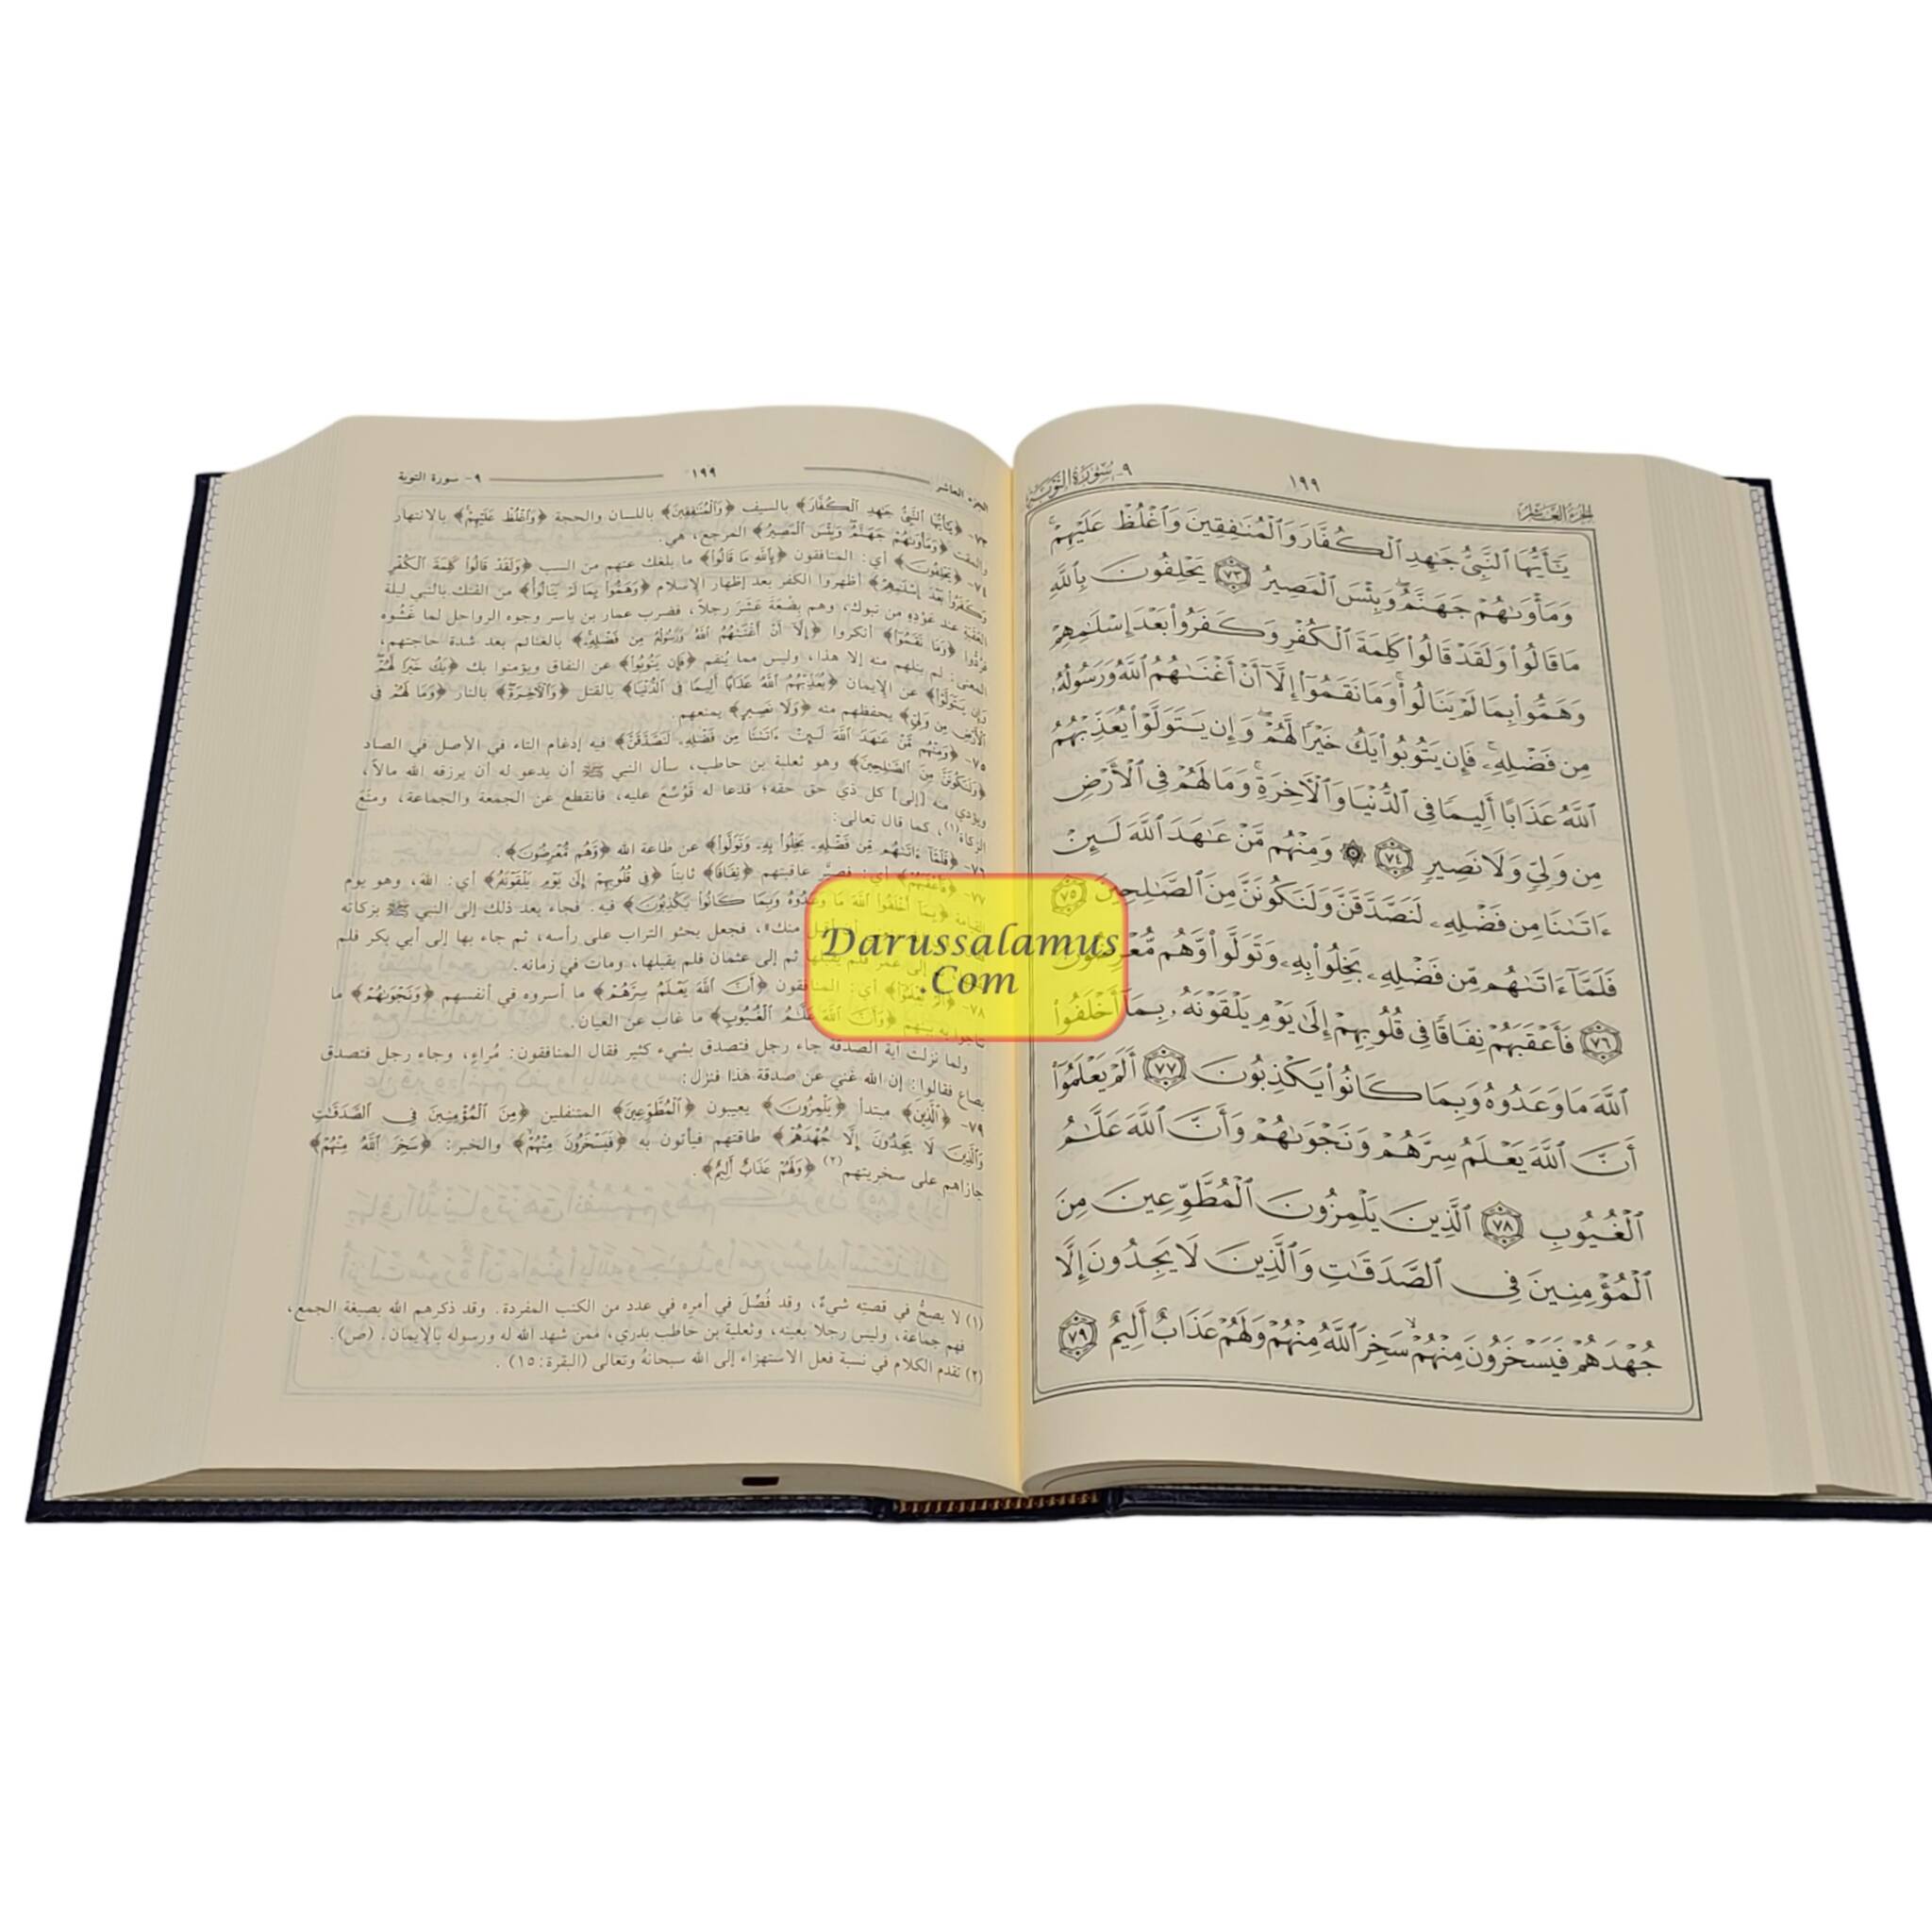 الجزء العاشر
١٩٩
٩- سورة التوبة
يَٰٓأَيُّهَا ٱلنَّبِىُّ جَٰهِدِ ٱلْكُفَّارَ وَٱلْمُنَٰفِقِينَ وَٱغْلُظْ عَلَيْهِمْۚ
وَمَأْوَىٰهُمْ جَهَنَّمُۖ وَبِئْسَ ٱلْمَصِيرُ ٧٣ يَحْلِفُونَ بِٱللَّهِ
مَا قَالُوا۟ وَلَقَدْ قَالُوا۟ كَلِمَةَ ٱلْكُفْرِ وَكَفَرُوا۟ بَعْدَ إِسْلَٰمِهِمْ
وَهَمُّوا۟ بِمَا لَمْ يَنَالُوا۟ۚ وَمَا نَقَمُوٓا۟ إِلَّآ أَنْ أَغْنَىٰهُمُ ٱللَّهُ وَرَسُولُهُۥ
مِن فَضْلِهِۦۚ فَإِن يَتُوبُوا۟ يَكُ خَيْرًا لَّهُمْۖ وَإِن يَتَوَلَّوْا۟ يُعَذِّبْهُمُ
ٱللَّهُ عَذَابًا أَلِيمًا فِى ٱلدُّنْيَا وَٱلْءَاخِرَةِۚ وَمَا لَهُمْ فِى ٱلْأَرْضِ
مِن وَلِىٍّ وَلَا نَصِيرٍ ٧٤ ۞ وَمِنْهُم مَّنْ عَٰهَدَ ٱللَّهَ لَئِنْ
ءَاتَىٰنَا مِن فَضْلِهِۦ لَنَصَّدَّقَنَّ وَلَنَكُونَنَّ مِنَ ٱلصَّٰلِحِينَ ٧٥
فَلَمَّآ ءَاتَىٰهُم مِّن فَضْلِهِۦ بَخِلُوا۟ بِهِۦ وَتَوَلَّوا۟ وَّهُم مُّعْرِضُونَ
٧٦ فَأَعْقَبَهُمْ نِفَاقًا فِى قُلُوبِهِمْ إِلَىٰ يَوْمِ يَلْقَوْنَهُۥ بِمَآ أَخْلَفُوا۟
ٱللَّهَ مَا وَعَدُوهُ وَبِمَا كَانُوا۟ يَكْذِبُونَ ٧٧ أَلَمْ يَعْلَمُوٓا۟
أَنَّ ٱللَّهَ يَعْلَمُ سِرَّهُمْ وَنَجْوَىٰهُمْ وَأَنَّ ٱللَّهَ عَلَّٰمُ
ٱلْغُيُوبِ ٧٨ ٱلَّذِينَ يَلْمِزُونَ ٱلْمُطَّوِّعِينَ مِنَ
ٱلْمُؤْمِنِينَ فِى ٱلصَّدَقَٰتِ وَٱلَّذِينَ لَا يَجِدُونَ إِلَّا
جُهْدَهُمْ فَيَسْخَرُونَ مِنْهُمْۙ سَخِرَ ٱللَّهُ مِنْهُمْ وَلَهُمْ عَذَابٌ أَلِيمٌ ٧٩
الجزء العاشر
١٩٩
٩- سورة التوبة
٧٣- ﴿يَٰٓأَيُّهَا ٱلنَّبِىُّ جَٰهِدِ ٱلْكُفَّارَ﴾ بالسيف ﴿وَٱلْمُنَٰفِقِينَ﴾ باللسان والحجة ﴿وَٱغْلُظْ عَلَيْهِمْۚ﴾ بالانتهار
والمقت ﴿وَمَأْوَىٰهُمْ جَهَنَّمُۖ وَبِئْسَ ٱلْمَصِيرُ﴾ المرجع، هي.
٧٤- ﴿يَحْلِفُونَ﴾ أي: المنافقون ﴿بِٱللَّهِ مَا قَالُوا۟﴾ ما بلغك عنهم من السب ﴿وَلَقَدْ قَالُوا۟ كَلِمَةَ ٱلْكُفْرِ
وَكَفَرُوا۟ بَعْدَ إِسْلَٰمِهِمْ﴾ أظهروا الكفر بعد إظهار الإسلام ﴿وَهَمُّوا۟ بِمَا لَمْ يَنَالُوا۟ۚ﴾ من الفتك بالنبي ليلة
العقبة عند عَوْدِهِ من تبوك، وهم بِضْعَةَ عَشَرَ رجلاً، فضرب عمار بن ياسر وجوه الرواحل لما غَشُوه
فرُدُّوا ﴿وَمَا نَقَمُوٓا۟﴾ أنكروا ﴿إِلَّآ أَنْ أَغْنَىٰهُمُ ٱللَّهُ وَرَسُولُهُۥ مِن فَضْلِهِۦۚ﴾ بالغنائم بعد شدة حاجتهم،
المعنى: لم ينلهم منه إلا هذا، وليس مما يُنقم ﴿فَإِن يَتُوبُوا۟﴾ عن النفاق ويؤمنوا بك ﴿يَكُ خَيْرًا لَّهُمْۖ
وَإِن يَتَوَلَّوْا۟﴾ عن الإيمان ﴿يُعَذِّبْهُمُ ٱللَّهُ عَذَابًا أَلِيمًا فِى ٱلدُّنْيَا﴾ بالقتل ﴿وَٱلْءَاخِرَةِۚ﴾ بالنار ﴿وَمَا لَهُمْ فِى
ٱلْأَرْضِ مِن وَلِىٍّ﴾ يحفظهم منه ﴿وَلَا نَصِيرٍ﴾ يمنعهم.
٧٥- ﴿وَمِنْهُم مَّنْ عَٰهَدَ ٱللَّهَ لَئِنْ ءَاتَىٰنَا مِن فَضْلِهِۦ لَنَصَّدَّقَنَّ﴾ فيه إدغام التاء في الأصل في الصاد
﴿وَلَنَكُونَنَّ مِنَ ٱلصَّٰلِحِينَ﴾ وهو ثعلبة بن حاطب، سأل النبي ﷺ أن يدعو له أن يرزقه الله مالاً،
ويؤدي منه [إلى] كل ذي حق حقه؛ فدعا له فَوُسِّعَ عليه، فانقطع عن الجمعة والجماعة، ومنَعَ
الزكاة(١)، كما قال تعالى:
٧٦- ﴿فَلَمَّآ ءَاتَىٰهُم مِّن فَضْلِهِۦ بَخِلُوا۟ بِهِۦ وَتَوَلَّوا۟﴾ عن طاعة الله ﴿وَّهُم مُّعْرِضُونَ﴾.
٧٧- ﴿فَأَعْقَبَهُمْ﴾ أي: فصيَّر عاقبتهم ﴿نِفَاقًا﴾ ثابتاً ﴿فِى قُلُوبِهِمْ إِلَىٰ يَوْمِ يَلْقَوْنَهُۥ﴾ أي: الله، وهو يوم
القيامة ﴿بِمَآ أَخْلَفُوا۟ ٱللَّهَ مَا وَعَدُوهُ وَبِمَا كَانُوا۟ يَكْذِبُونَ﴾ فيه. فجاء بعد ذلك إلى النبي ﷺ بزكاته
منك»، فجعل يحثو التراب على رأسه، ثم جاء بها إلى أبي بكر فلم
إلى عمر فلم يقبلها ثم إلى عثمان فلم يقبلها، ومات في زمانه.
٧٨- أي: المنافقون ﴿أَنَّ ٱللَّهَ يَعْلَمُ سِرَّهُمْ﴾ ما أسروه في أنفسهم ﴿وَنَجْوَىٰهُمْ﴾ ما
تناجوا به بينهم ﴿وَأَنَّ ٱللَّهَ عَلَّٰمُ ٱلْغُيُوبِ﴾ ما غاب عن العيان.
ولما نزلت آية الصدقة جاء رجل فتصدق بشيء كثير فقال المنافقون: مُراءٍ، وجاء رجل فتصدق
بصاع فقالوا: إن الله غني عن صدقة هذا فنزل:
٧٩- ﴿ٱلَّذِينَ﴾ مبتدأ ﴿يَلْمِزُونَ﴾ يعيبون ﴿ٱلْمُطَّوِّعِينَ﴾ المتنفلين ﴿مِنَ ٱلْمُؤْمِنِينَ فِى ٱلصَّدَقَٰتِ
وَٱلَّذِينَ لَا يَجِدُونَ إِلَّا جُهْدَهُمْ﴾ طاقتهم فيأتون به ﴿فَيَسْخَرُونَ مِنْهُمْ﴾ والخبر: ﴿سَخِرَ ٱللَّهُ مِنْهُمْ﴾
جازاهم على سخريتهم(٢) ﴿وَلَهُمْ عَذَابٌ أَلِيمٌ﴾.
(١) لا يصحُّ في قصته شيءٌ، وقد فُصِّلَ في أمره في عدد من الكتب المفردة. وقد ذكرهم الله بصيغة الجمع،
فهم جماعة، وليس رجلا بعينه، وثعلبة بن حاطب بدري، فمن شهد الله له ورسوله بالإيمان. (ص).
(٢) تقدم الكلام في نسبة فعل الاستهزاء إلى الله سبحانه وتعالى (البقرة: ١٥).
Darussalamus
.Com